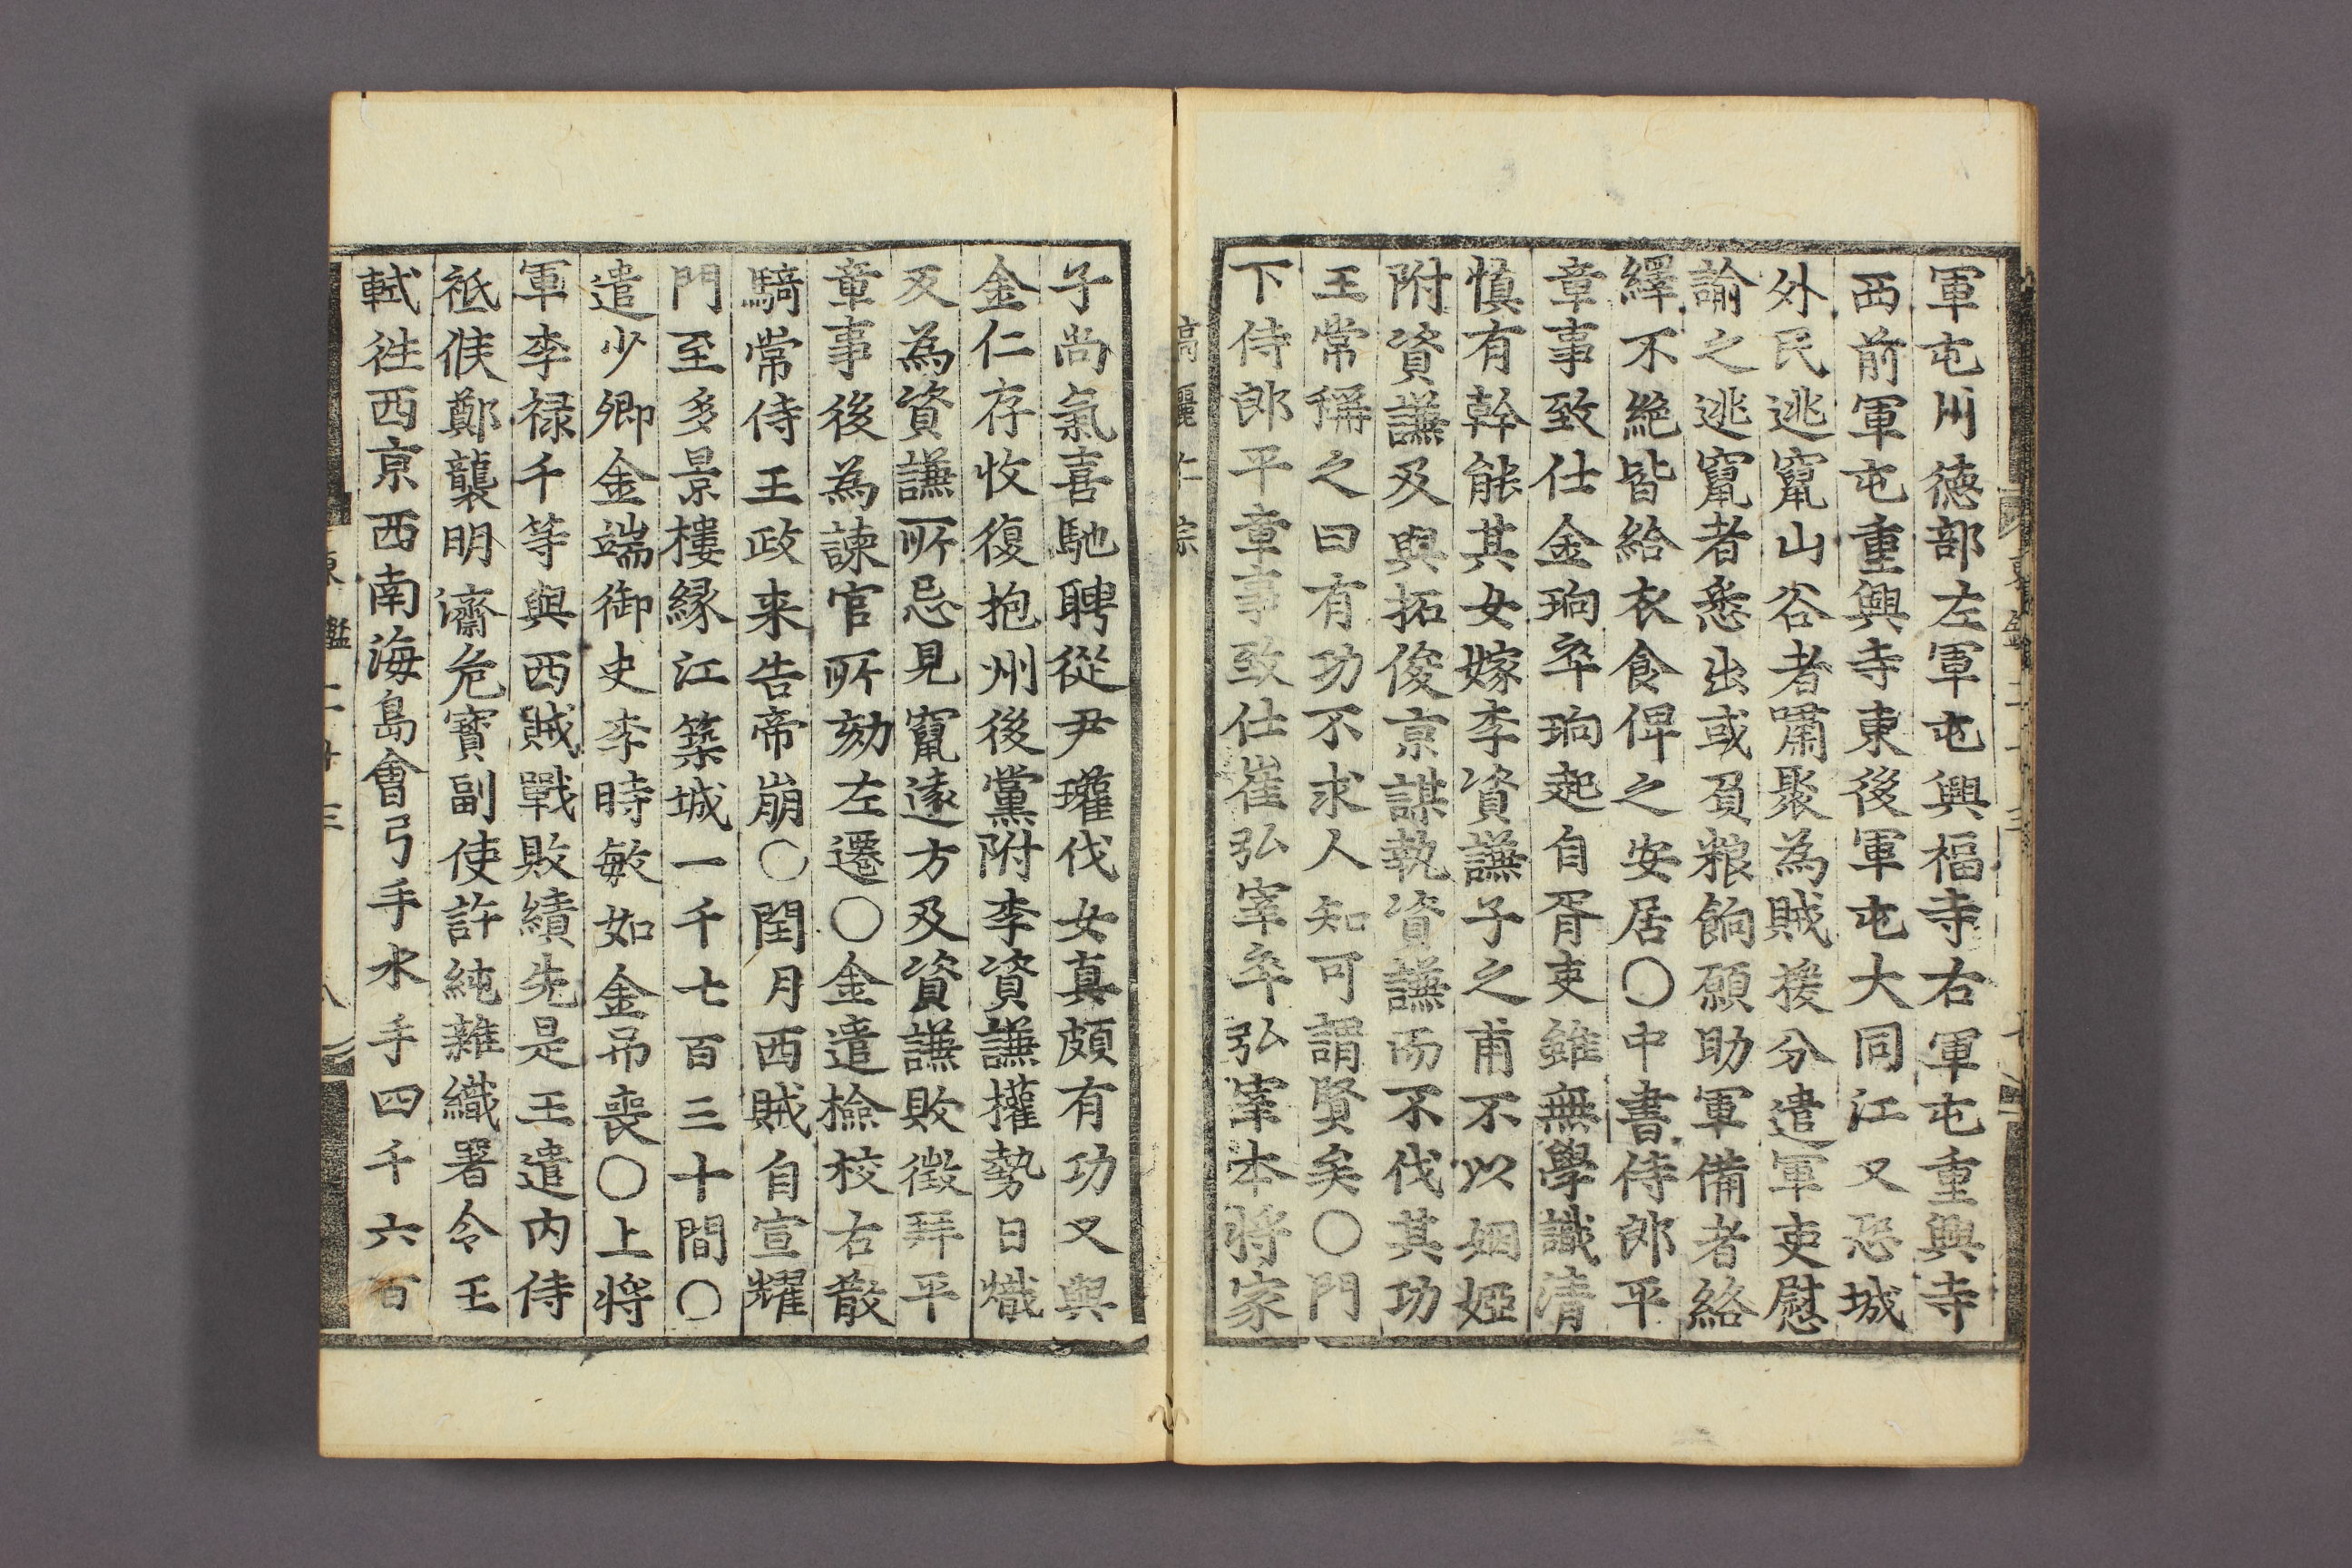 軍屯川德部左軍屯興福寺右軍屯重興寺
西前軍屯重興寺東後軍屯大同江又恐城
外民逃竄山谷者嘯聚為賊援分遣軍吏慰
諭之逃竄者悉出或負粮餉願助軍備者絡
繹不絶皆給衣食俾之安居〇中書侍郎平
章事致仕金珦卒珦起自胥吏雖無學識清
慎有幹能其女嫁李資謙子之甫不以姻婭
附資謙及與拓俊京謀執資謙而不伐其功
王常稱之曰有功不求人知可謂賢矣〇門
下侍郎平章事致仕崔弘宰卒弘宰本將家
高麗仁宗
子尚氣喜馳騁從尹瓘伐女真頗有功又與
金仁存收復抱州後黨附李資謙權勢日熾
反為資謙所忌見竄遠方及資謙敗徵拜平
章事後為諫官所劾左遷〇金遣檢校右散
騎常侍王政来告帝崩〇閏月西賊自宣耀
門至多景樓縁江築城一千七百三十間〇
遣少卿金端御史李時敏如金吊喪〇上將
軍李禄千等與西賊戰敗績先是王遣内侍
祗候鄭襲明濟危寳副使許純雜織署令王
軾徃西京西南海島會弓手水手四千六百
東鑑二十三 八